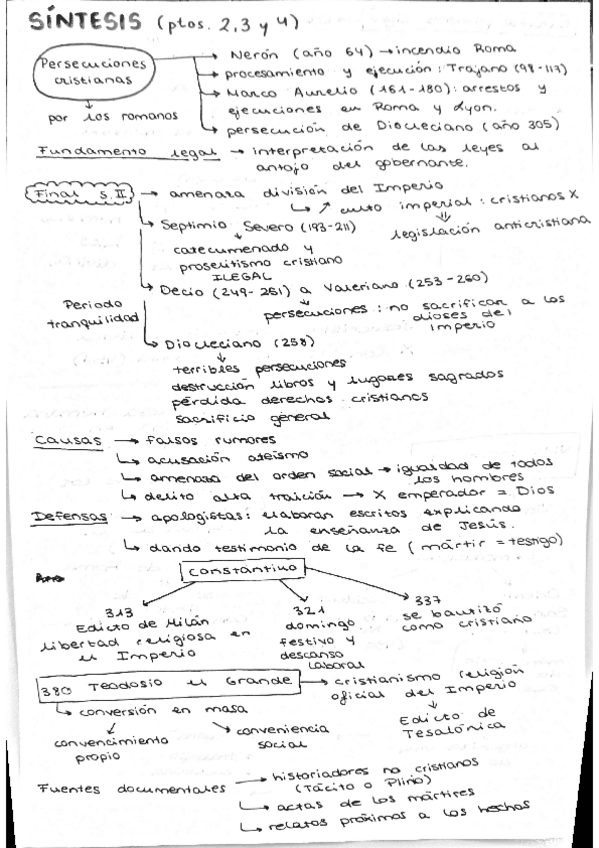 SÍNTESIS (ptos. 2,3 y 4)
Persecuciones cristianas
por los romanos
→ Nerón (año 64) → incendio Roma
→ procesamiento y ejecución: Trajano (98-117)
→ Marco Aurelio (161-180): arrestos y
ejecuciones en Roma y Lyon.
→ persecución de Diocleciano (año 305)
Fundamento legal → interpretación de las leyes al
antojo del gobernante.
Final S.II → amenaza división del Imperio
↳ ↗ culto imperial: cristianos X
legislación anticristiana
Septimio Severo (193-211)
catecumenado y
proselitismo cristiano
ILEGAL
Decio (249-251) a Valeriano (253-260)
persecuciones: no sacrifican a los
dioses del
Imperio
Periodo
tranquilidad
Diocleciano (258)
terribles persecuciones
destrucción libros y lugares sagrados
pérdida derechos cristianos
sacrificio general
Causas → falsos rumores
↳ acusación ateísmo
↳ amenaza del orden social → igualdad de todos
los hombres
↳ delito alta traición → X emperador = Dios
Defensas → apologistas: elaboran escritos explicando
la enseñanza de Jesús.
↳ dando testimonio de la fe (mártir = testigo)
Constantino
313
Edicto de Milán
libertad religiosa en
el Imperio
321
domingo
festivo y
descanso
laboral
337
se bautizó
como cristiano
380 Teodosio el Grande → cristianismo religión
oficial del Imperio
Edicto de
Tesalónica
↳ conversión en masa
convencimiento
propio
conveniencia
social
Fuentes documentales → historiadores no cristianos
(Tácito o Plinio)
↳ actas de los mártires
↳ relatos próximos a los hechos